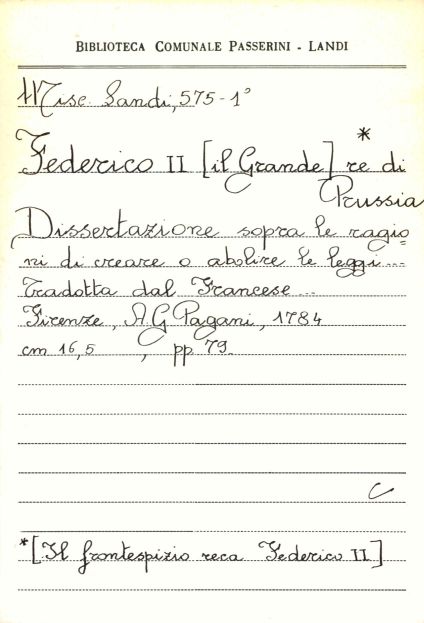 BIBLIOTECA COMUNALE PASSERINI - LANDI
Misc. Landi, 575-1°
Federico II [il Grande]* re di
Prussia
Dissertazione sopra le ragio=
ni di creare o abolire le leggi...
Tradotta dal Francese...
Firenze, A.G Pagani, 1784
cm 16,5 , pp 79.
C
*[Il frontespizio reca Federico II]